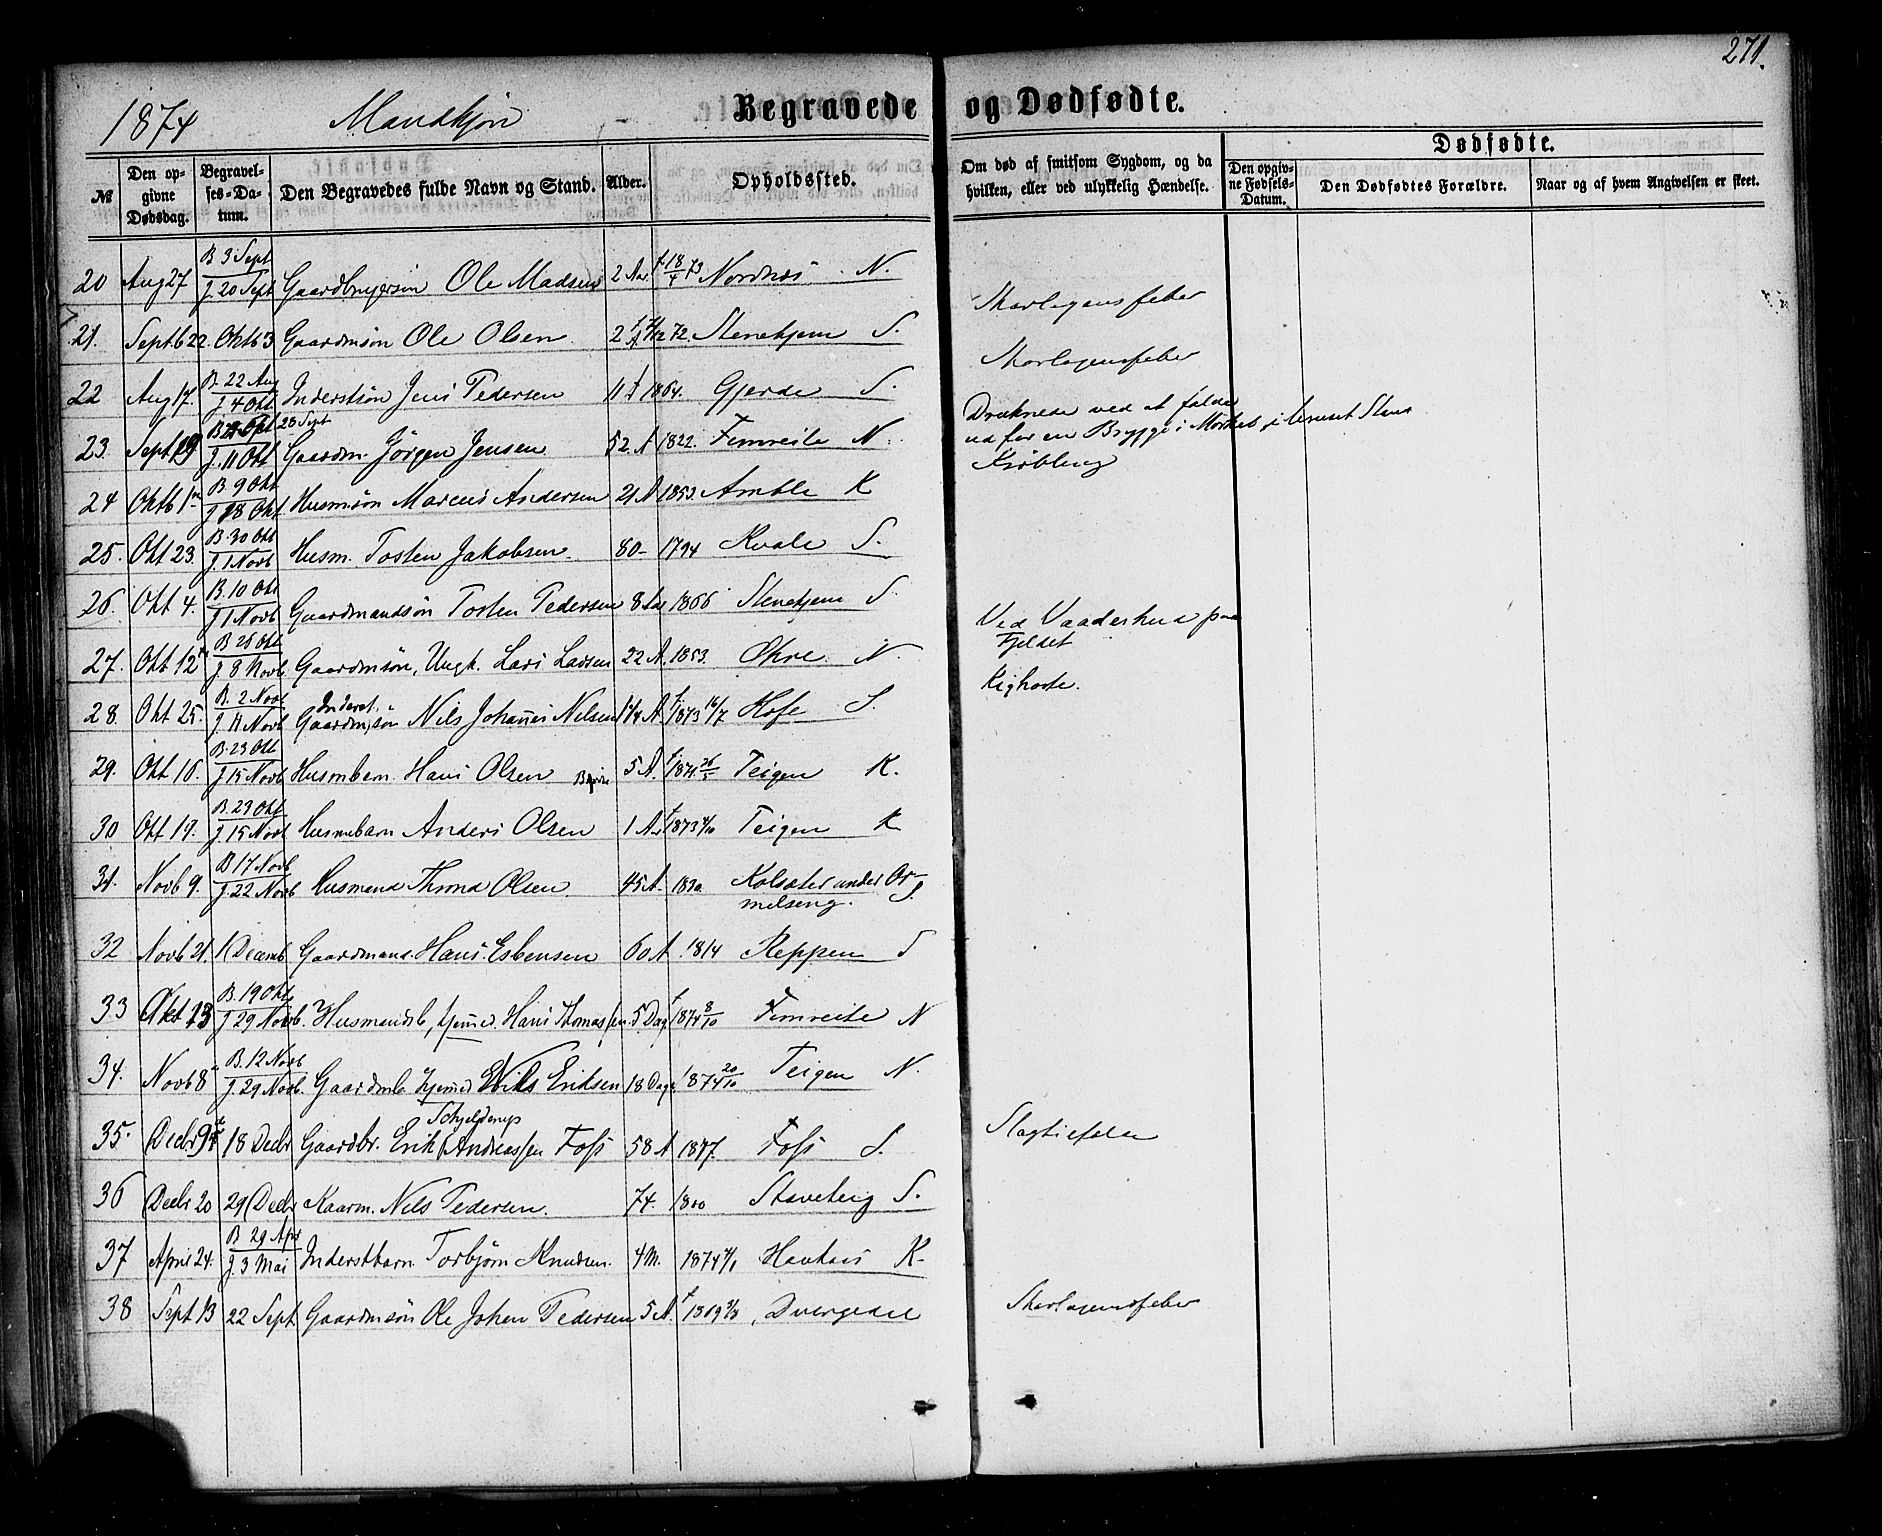 271.
1874 Mandkjøn Begravede og Dødfødte.
Dødfødte.
№ Den opgivne Dødsdag. Begravelses-Datum. Den Begravedes fulde Navn og Stand. Alder. Opholdssted. Om død af smitsom Sygdom, og da hvilken, eller ved ulykkelig Hændelse. Den opgivne Fødsels-Datum. Den Dødfødtes Forældre. Naar og af hvem Angivelsen er skeet.
20 Aug 27 B 3 Sept J. 20 Sept Gaardbrugersøn Ole Madsen 2 Aar f 18/4 73 Nordnæs N. Skarlagensfeber
21. Septb 22. Oktb 3 Gaardmsøn Ole Olsen 2 A 72. Stenehjem S. Skarlagensfeber
22 Aug 17. B. 22 Aug J. 4 Okt Inderstsøn Jens Pedersen 11 1864. Gjerde S.
23. Sept 19 25 Sept J. 11 Okt Gaardm. Jörgen Jensen 52. A 1822. Fimreite N. Druknede ved at falde ud for en Brygge i Mörket i
24 Oktb 1 B 9 Okt J 18 Okt. Husmsøn Marcus Andersen 21 A 1853. Amble K
25. Okt 23. B. 30 Okt J. 1 Novb Husm. Tosten Jakobsen. 80 - 1794 Kvale S.
26. Okt 4. B. 10 Okt J 1 Novb Gaardmandsön Tosten Pedersen 8 Aar 1866 Stenehjem S.
27. Okt 12 B 26 Okt J. 8 Novb. Gaardmsøn, Ungk. Lars Larsen 22 A. 1853. Øhre N Ved Vaadeskud paa Fjeldet
28. Okt 25. B. 2 Novb J. 11 Novb Inderst. Gaardmsøn Nils Johannes Nilsen 1 1/4 A. f 1873 16/7 Hofe S. Kighoste.
29. Okt 16. B. 23 Okt J 15 Novb Husmbarn. Hans Olsen 5 A. Teigen K.
30 Okt 19. B. 29 Okt J. 15 Novb Husmbarn Anders Olsen 1 A. f 1873 Teigen K
31. Novb 9. B 17 Novb J. 22 Novb Husmand Thrond Olsen. 45 A. 1830 Kolsæter under Ormelseng. S.
32 Novb 21. 1 Decemb. Gaardmand. Hans Esbensen 60 A 1814 Reppen S
33 Okt 13 B. 19 Okt. J 29 Novb. Husmandsb, hjemmed. Hans Thomassen. 5 Dag. f 1874 8/10 Fimreite N
34. Novb 8 B. 12 Novb J. 29 Novb. Gaardmb hjemmed Nils Eriksen 18 Dage f 1874 20/10 Teigen N.
35. Decbr 9 18 Decbr Gaardbr. Erik Schjelderup (Andreassen Foss 58 A 1817. Foss S. Slagtilfælde
36 Decbr 20 29 Decbr Kaarm. Nils Pedersen. 74. 1800 Staveteig S.
37 April 24. B 29 Apr J. 3 Mai Inderstbarn Torbjørn Knudsen. 4 M. 1874 Haukaas K.
38 Sept 13 22 Sept. Gaardmsøn Ole Johan Pedersen 5 A. Dvergedal Skarlagensfeber